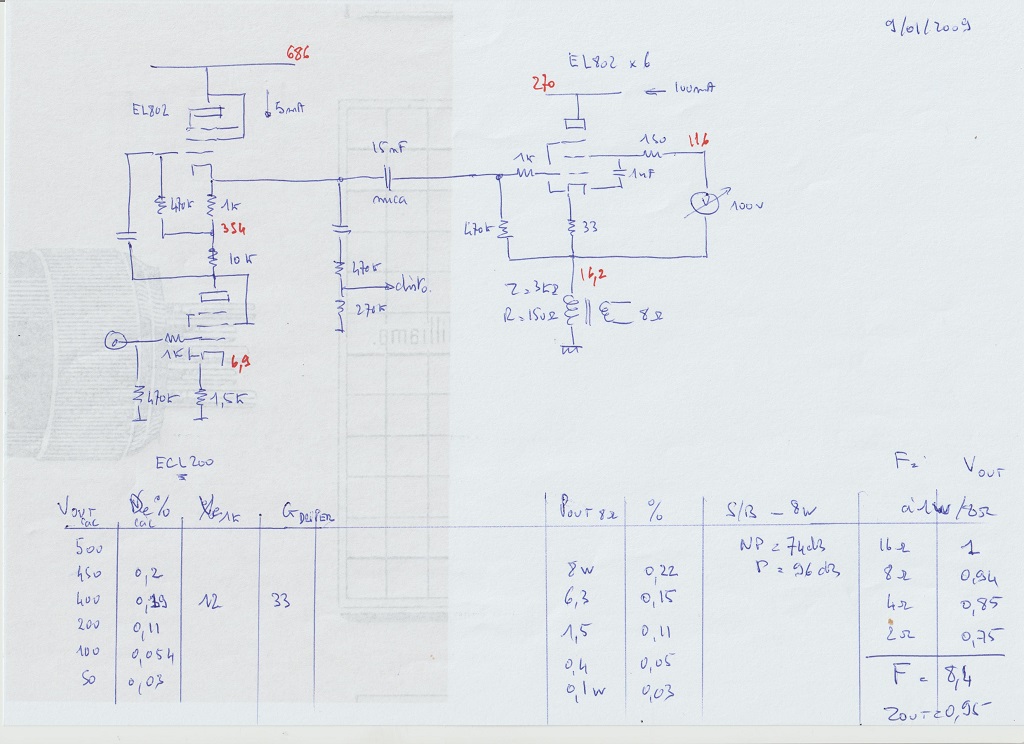 9/01/2009
686
EL802
5mA
470K
1K
354
10K
1K
6,9
470K
1,5K
15nF
mica
470K
disto.
270K
EL802 x 6
270
100mA
150
116
1K
1uF
100V
470K
33
16,2
Z=3KΩ
R=150Ω
8Ω
ECL200
VOUT cac
% cac
GDRIVER
500
450 0,2
400 0,19 12 33
200 0,11
100 0,054
50 0,03
POUT 8Ω % S/B - 8W
NP = 74dB
P = 96dB
8W 0,22
6,3 0,15
1,5 0,11
0,4 0,05
0,1W 0,03
F=
VOUT
à 1W/8Ω
16Ω 1
8Ω 0,94
4Ω 0,85
2Ω 0,75
F = 8,4
ZOUT=0,95